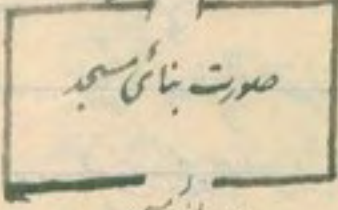 صورت بنائی مسجد